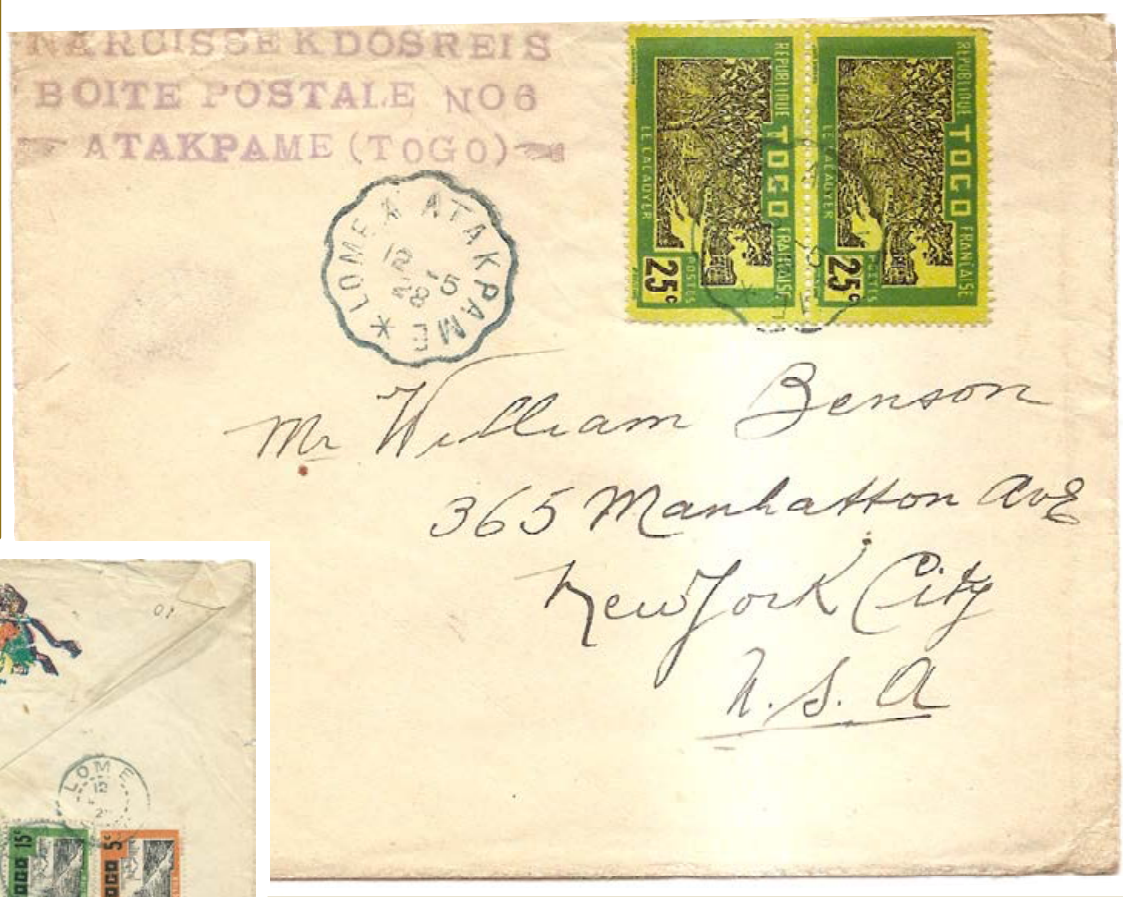 NARCISSE K DOSREIS
BOITE POSTALE NO6
ATAKPAME (TOGO)
LOME A ATAKPAME *
12 -5
28
REPUBLIQUE TOGO FRANÇAISE
LE CACAOYER
POSTES
25c
REPUBLIQUE TOGO FRANÇAISE
LE CACAOYER
POSTES
25c
Mr William Benson
365 Manhatton Ave
New York City
U.S.A
10
LOME
12
15c
5c